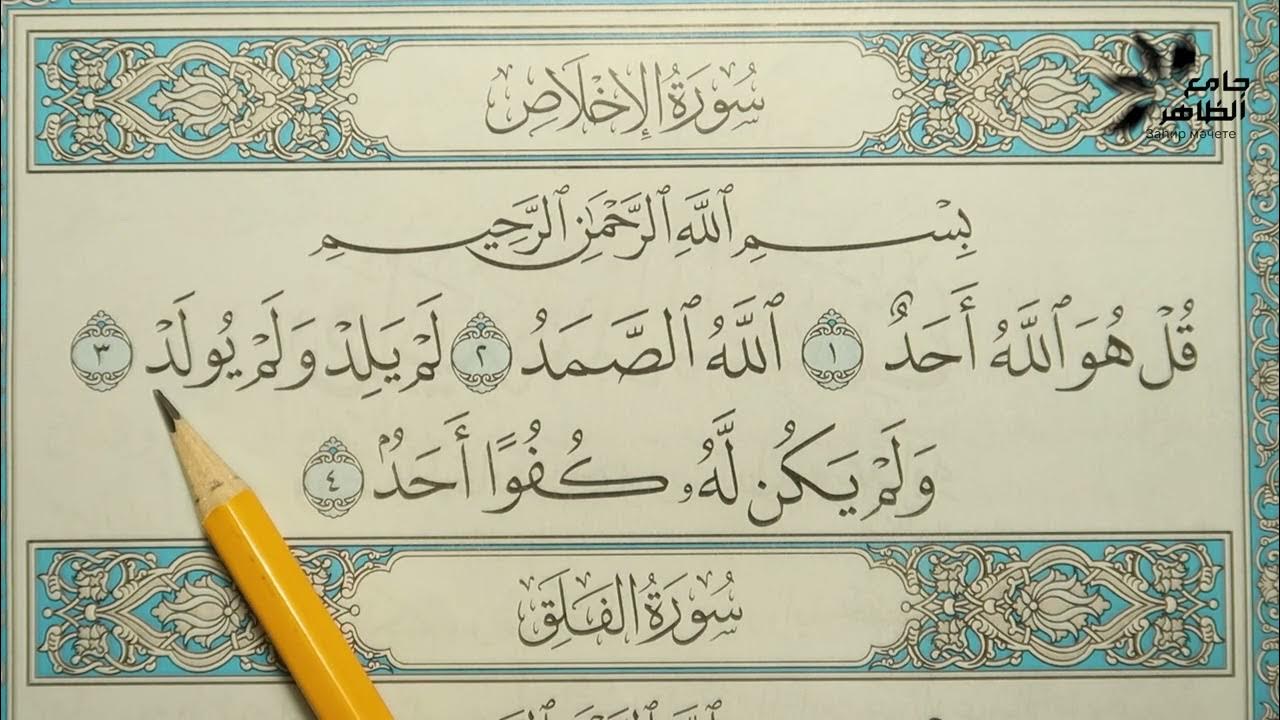 سُورَةُ الإِخْلَاصِ
جامع
الظاهر
Заһир мәчете
بِسْمِ ٱللَّهِ ٱلرَّحْمَٰنِ ٱلرَّحِيمِ
قُلْ هُوَ ٱللَّهُ أَحَدٌ ١ ٱللَّهُ ٱلصَّمَدُ ٢ لَمْ يَلِدْ وَلَمْ يُولَدْ ٣
وَلَمْ يَكُن لَّهُۥ كُفُوًا أَحَدُۢ ٤
سُورَةُ الفَلَقِ